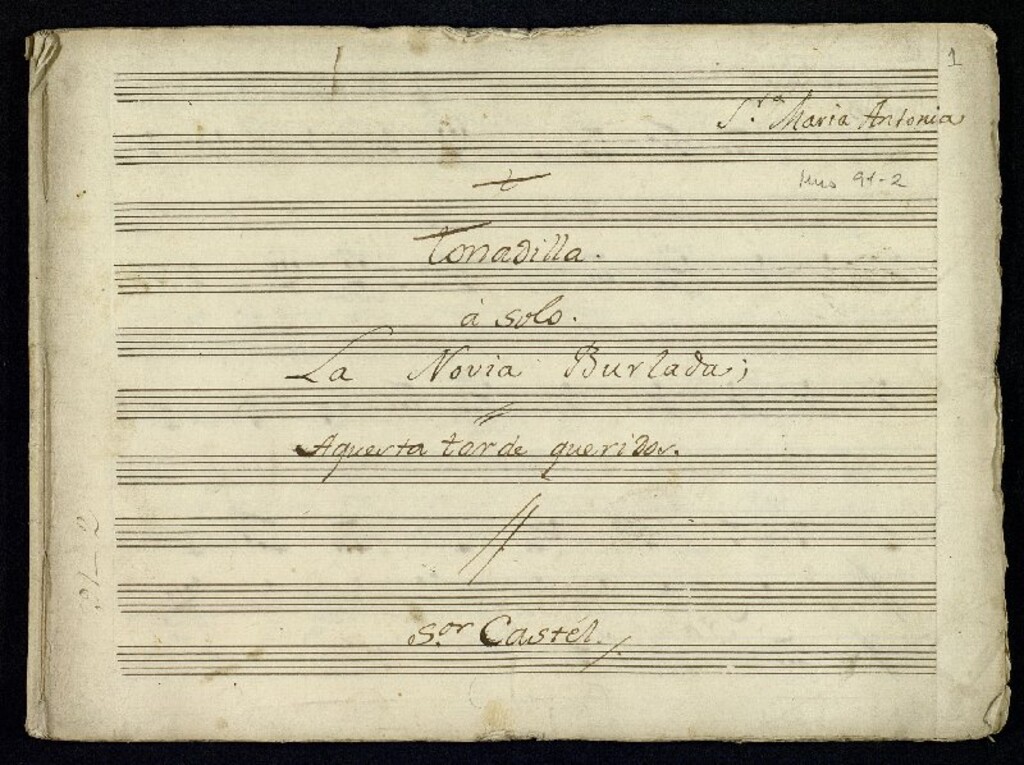 1
S.ra Maria Antonia
Mus 91-2
Tonadilla.
à solo.
La Novia Burlada;
Aquesta tarde queridos.
S.or Castél.
91-2